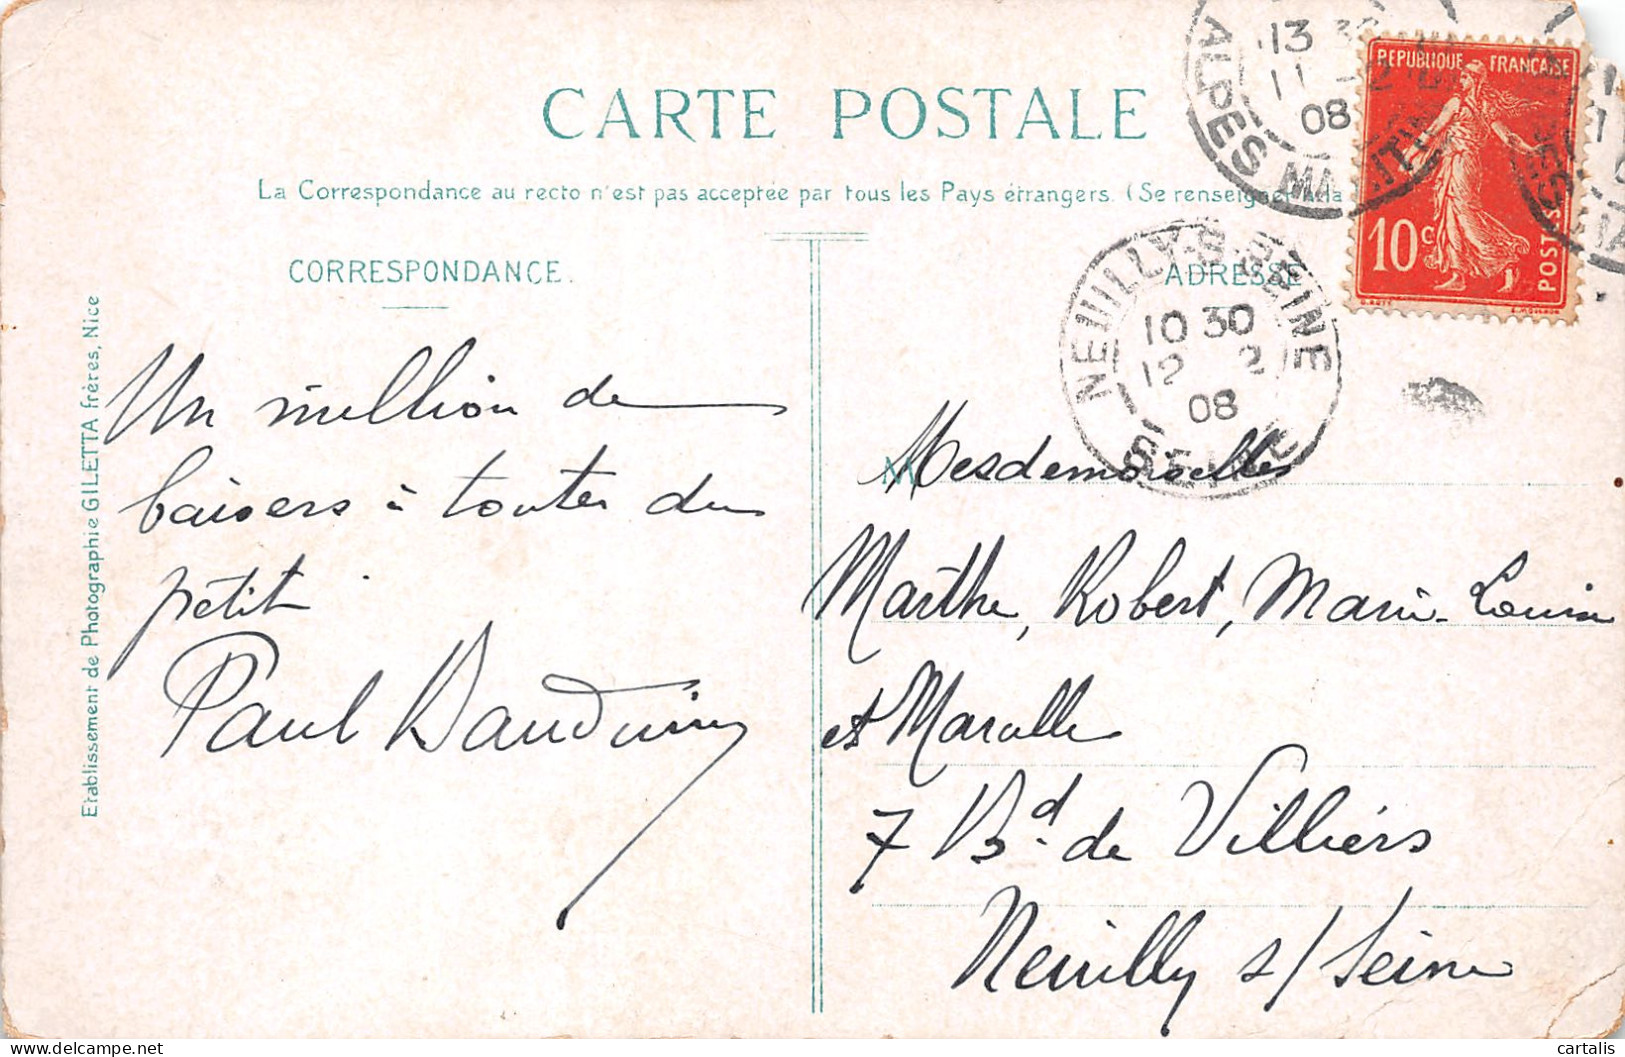 CARTE POSTALE
La Correspondance au recto n'est pas acceptée par tous les Pays étrangers. (Se renseigner à la
CORRESPONDANCE.
ADRESSE
Etablissement de Photographie GILETTA frères, Nice
Un million de
baisers à toutes du
petit
Paul Bauduin
M
Mesdemoiselles
Marthe, Robert, Marie-Louise
et Marcelle
7 Bd. de Villiers
Neuilly s/ Seine
13 30
11
08
ALPES MARITIMES
NEUILLY-S-SEINE
10 30
12 2
08
SEINE
REPUBLIQUE FRANÇAISE
10c
POSTES
cartalis